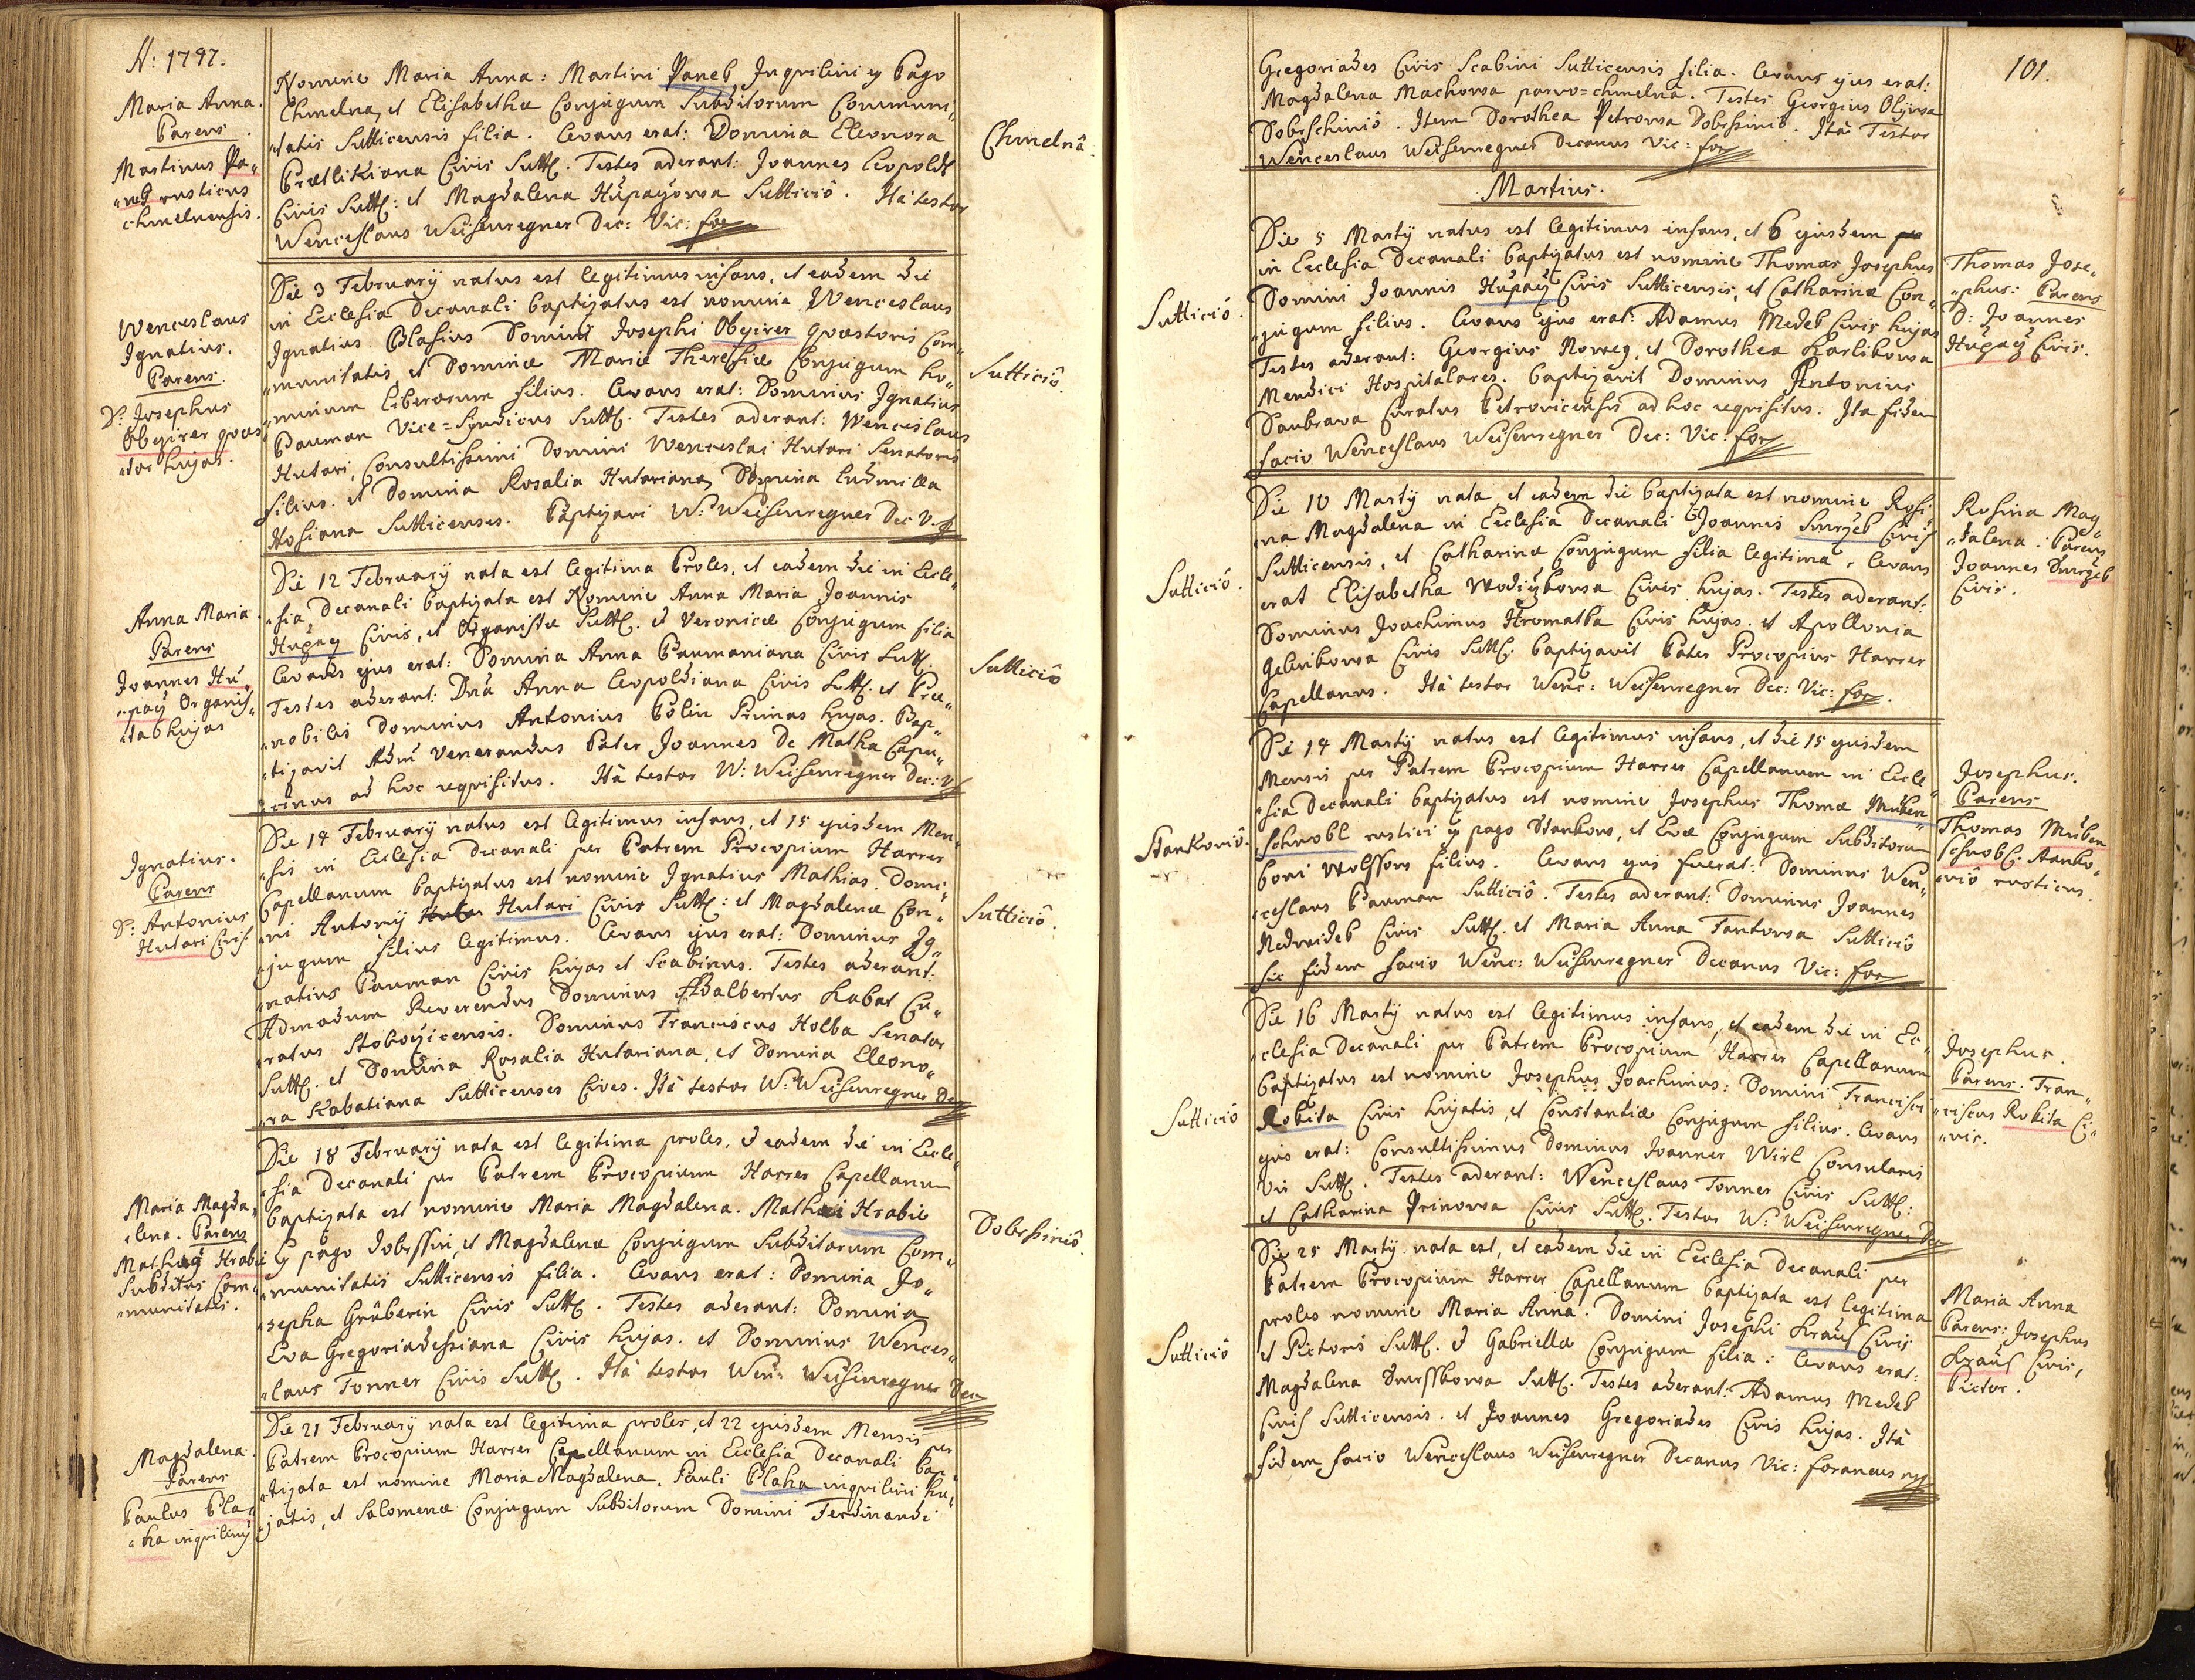 A: 1747.
Maria Anna.
Parens
Martinus Pa„
„neb rusticus
chmelnensis.
Nomine Maria Anna: Martini Paneb Inquilini ex Pago
Chmelna, et Elisabethæ Conjugum Subditorum Communi„
„tatis Sutticensis filia. Levans erat: Domina Eleonora
Civis Sutt. Testes aderant: Joannes Leopoldt
Civis Sutt: et Magdalena Hupayowa Sutticiô. Ità testor
Wenceslaus Weisenregner Dec: Vic: for
Chmelnâ.
Wenceslaus
Ignatius.
Parens.
D: Josephus
Obyirer quæs
„tor hujas.
Die 3 February natus est legitimus infans, et eadem die
in Ecclesia Decanali baptizatus est nomine Wenceslaus
Ignatius Blasius Domini Josephi Obyirer quæstoris Com„
„munitatis et Dominæ Mariæ Theresiæ Conjugum ho„
„minum liberorum filius. Levans erat: Dominus Ignatius
Pauman Vice=Syndicus Sutt. Testes aderant: Wenceslaus
Hutari, Consultissimi Domini Wenceslai Hutari Senatoris
filius. et Domina Rosalia Hutariana, Domina Ludmilla
Hosiana Sutticenses. Baptizavi W: Weisenregner Dec V. f
Sutticiô.
Anna Maria.
Parens
Joannes Hu„
„pay Organis„
„ta hujas
Die 12 February nata est legitima Proles, et eadem die in Eccle„
„sia Decanali baptizata est Nomine Anna Maria Joannis
Hupay Civis, et Organistæ Sutt. et Veronicæ Conjugum filia
Levans ejus erat: Domina Anna Paumaniana Civis Sutt.
Testes aderant: Dnã Anna Leopoldiana Civis Sutt. et Præ„
„nobilis Dominus Antonius Polin Primas hujas. Bap„
„tizavit Adm Venerandus Pater Joannes De Matha Capu„
„cinus ad hoc requisitus. Ità testor W: Weisenregner Dec: V
Sutticiô
Ignatius.
Parens
D: Antonius
Hutari Civis
Die 14 February natus est legitimus infans, et 15 ejusdem Men„
„sis in Ecclesia Decanali per Patrem Procopium Harrer
Capellanum baptizatus est nomine Ignatius Mathias. Domi„
„ni Antony Hutari Civis Sutt: et Magdalenæ Con„
„jugum filius legitimus. Levans ejus erat: Dominus Ig„
„natius Pauman Civis hujas et Scabinus. Testes aderant:
Admodum Reverendus Dominus Adalbertus Kabat Cu„
„ratus Hoboyicensis. Dominus Franciscus Holba Senator
Sutt. et Domina Rosalia Hutariana, et Domina Eleono„
„ra Kabatiana Sutticenses Cives. Ità testor W: Weisenregner Dec
Sutticiô.
Maria Magda„
„lena. Parens
Mathæy Hrabie
Subditus Com„
„munitatis.
Die 18 February nata est legitima proles, et eadem die in Eccle„
„sia Decanali per Patrem Procopium Harrer Capellanum
baptizata est nomine Maria Magdalena. Mathæi Hrabie
ex pago Dobrssin, et Magdalenæ Conjugum Subditorum Com„
„munitatis Sutticensis filia. Levans erat: Domina Jo„
„sepha Grüberin Civis Sutt. Testes aderant: Domina
Eva Gregoriadessiana Civis hujas. et Dominus Wences„
„laus Tonner Civis Sutt. Ità testor Wen: Weisenregner Dec
Dobrssiniô.
Magdalena.
Parens
Paulus Bla„
„ha inquiliny
Die 21 February nata est legitima proles, et 22 ejusdem Mensis per
Patrem Procopium Harrer Capellanum in Ecclesia Decanali bap„
„tizata est nomine Maria Magdalena, Pauli Blaha inquilini hu„
„jatis, et Salomenæ Conjugum Subditorum Domini Ferdinandi
101.
Gregoriades Civis Scabini Sutticensis filia. Levans ejus erat:
Magdalena Machowa parvo=chmelnâ. Testes Georgius Oliwa
Dobrschiniô. Item Dorothea Petrowa Dobrssiniô. Ità Testor
Wenceslaus Weisenregner Decanus Vic: for
Martius.
Sutticiô.
Die 5 Marty natus est legitimus infans, et 6 ejusdem
in Ecclesia Decanali baptizatus est nomine Thomas Josephus
Domini Joannis Hupay Civis Sutticensis, et Catharinæ Con„
„jugum filius. Levans ejus erat: Adamus Medek Civis hujas
Testes aderant: Georgius Noweg, et Dorothea Karlikowa
Mendici Hospitalares. baptizavit Dominus Antonius
Daubrawa Curatus Petrovicensis ad hoc requisitus. Ita fidem
facio Wenceslaus Weisenregner Dec: Vic: for
Thomas Jose„
„phus: Parens
D: Joannes
Hupay Civis.
Sutticiô.
Die 10 Marty nata, et eadem die baptizata est nomine Rosi„
„na Magdalena in Ecclesia Decanali Joannis Smrzek Civis
Sutticensis, et Catharinæ Conjugum filia legitima. Levans
erat Elisabetha Wodizkowa Civis hujas. Testes aderant:
Dominus Joachimus Hromatka Civis hujas. et Apollonia
Gelinkowa Civis Sutt. baptizavit Pater Procopius Harrer
Capellanus. Ità testor Wenc: Weisenregner Dec: Vic: for.
Rosina Mag„
„dalena. Parens
Joannes Smrzek
Civis.
Stankoviô.
Die 14 Marty natus est legitimus infans, et die 15 ejusdem
Mensis per Patrem Procopium Harrer Capellanum in Eccle„
„sia Decanali baptizatus est nomine Josephus Thomæ Muken„
schnobl rustici ex pago Stankow, et Evæ Conjugum Subditorum
boni Wolssow filius. Levans ejus fuerat: Dominus Wen„
„ceslaus Pauman Sutticiô. Testes aderant: Dominus Joannes
Nedwidek Civis Sutt. et Maria Anna Fantowa Sutticiô
sic fidem facio Wenc: Weisenregner Decanus Vic: for
Josephus.
Parens
Thomas Muken
schnobl. Stanko„
„viô rusticus.
Sutticiô
Die 16 Marty natus est legitimus infans, et eadem die in Ec„
„clesia Decanali per Patrem Procopium Harrer Capellanum
baptizatus est nomine Josephus Joachimus: Domini Francisci
Rokita Civis hujatis, et Constantiæ Conjugum filius. Levans
ejus erat: Consultissimus Dominus Joannes Wirl Consularis
Vir Sutt. Testes aderant: Wenceslaus Tonner Civis Sutt:
et Catharina Princowa Civis Sutt. Testor W: Weisenregner Dec
Josephus.
Parens. Fran„
„ciscus Rokita Ci„
„vis.
Sutticiô
Die 25 Marty nata est, et eadem die in Ecclesia Decanali per
Patrem Procopium Harrer Capellanum baptizata est legitima
proles nomine Maria Anna: Domini Josephi Kraus Civis
et Pictoris Sutt. et Gabriellæ Conjugum filia: Levans erat:
Magdalena Smrsskowa Sutt. Testes aderant: Adamus Medek
Civis Sutticensis. et Joannes Gregoriades Civis hujas. Ità
fidem facio Wenceslaus Weisenregner Decanus Vic: foraneus
Maria Anna
Parens: Josephus
Kraus Civis,
Pictor.